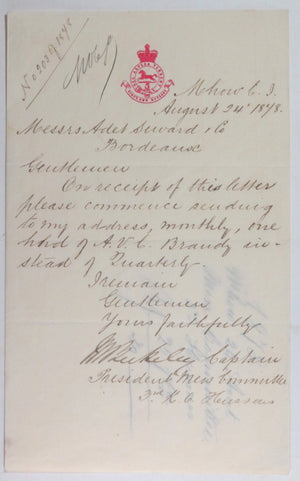 No 903 of 1878
Mhow C. I.
August 24th 1878.
Messrs Adet Seward & Co
Bordeaux
Gentlemen
On receipt of this letter
please commence sending
to my address, monthly, one
hhd of A.V.C. Brandy in-
stead of Quarterly.
I remain
Gentlemen
Yours faithfully
Captain
President Mess Committee
3rd K. O. Hussars